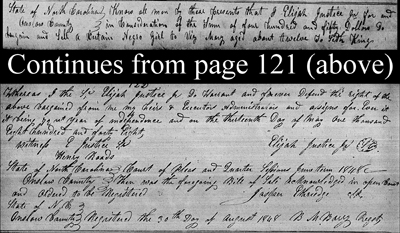 State of North Carolina, Know all men by these Presents that I Elijah Justice Jr for and
Onslow County in Consideration of the Sum of four hundred and fifty Dollars Do
bargain and Sell a Certain Negro Girl to Viz Mary aged about twelve To Seth King
Continues from page 121 (above)
Whereas I the Sd Elijah Justice Jr Do Warrant and forever Defend the Right of the
above bargained from me my heirs & Executors Administrators and assigns for Ever
it being year of independence and on the thirteenth Day of May One thousand
Eight hundred and forty Eight,
Witness E Justice Sr Elijah Justice Jr
Henry Rhodes
State of North Carolina Court of Pleas and Quarter Sessions June term 1848
Onslow County Then was the foregoing Bill of Sale acknowledged in open Court
and ordered to be Registered Jasper Etheridge Clk
State of N. C.
Onslow County Registered the 30th Day of August 1848